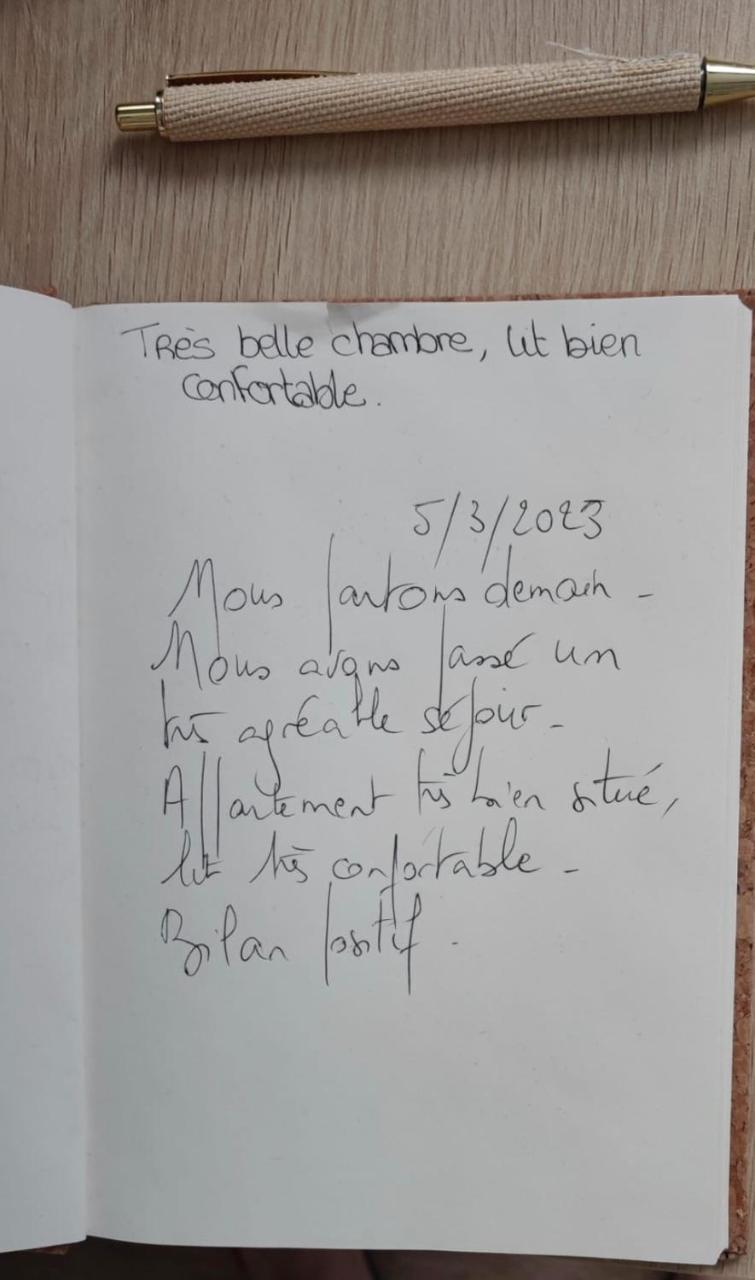 Très belle chambre, lit bien
confortable.
5/3/2023
Nous partons demain -
Nous avons passé un
très agréable séjour -
Appartement très bien situé,
lit très confortable -
Bilan positif.